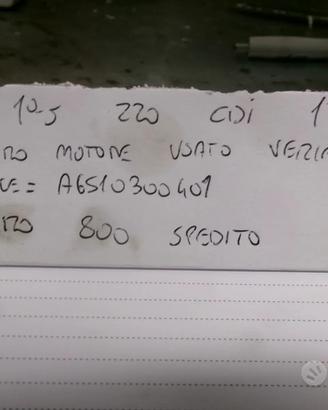 10-5 220 CDI 1
RO MOTORE USATO VERI
CE= A6510300401
RO 800 SPEDITO